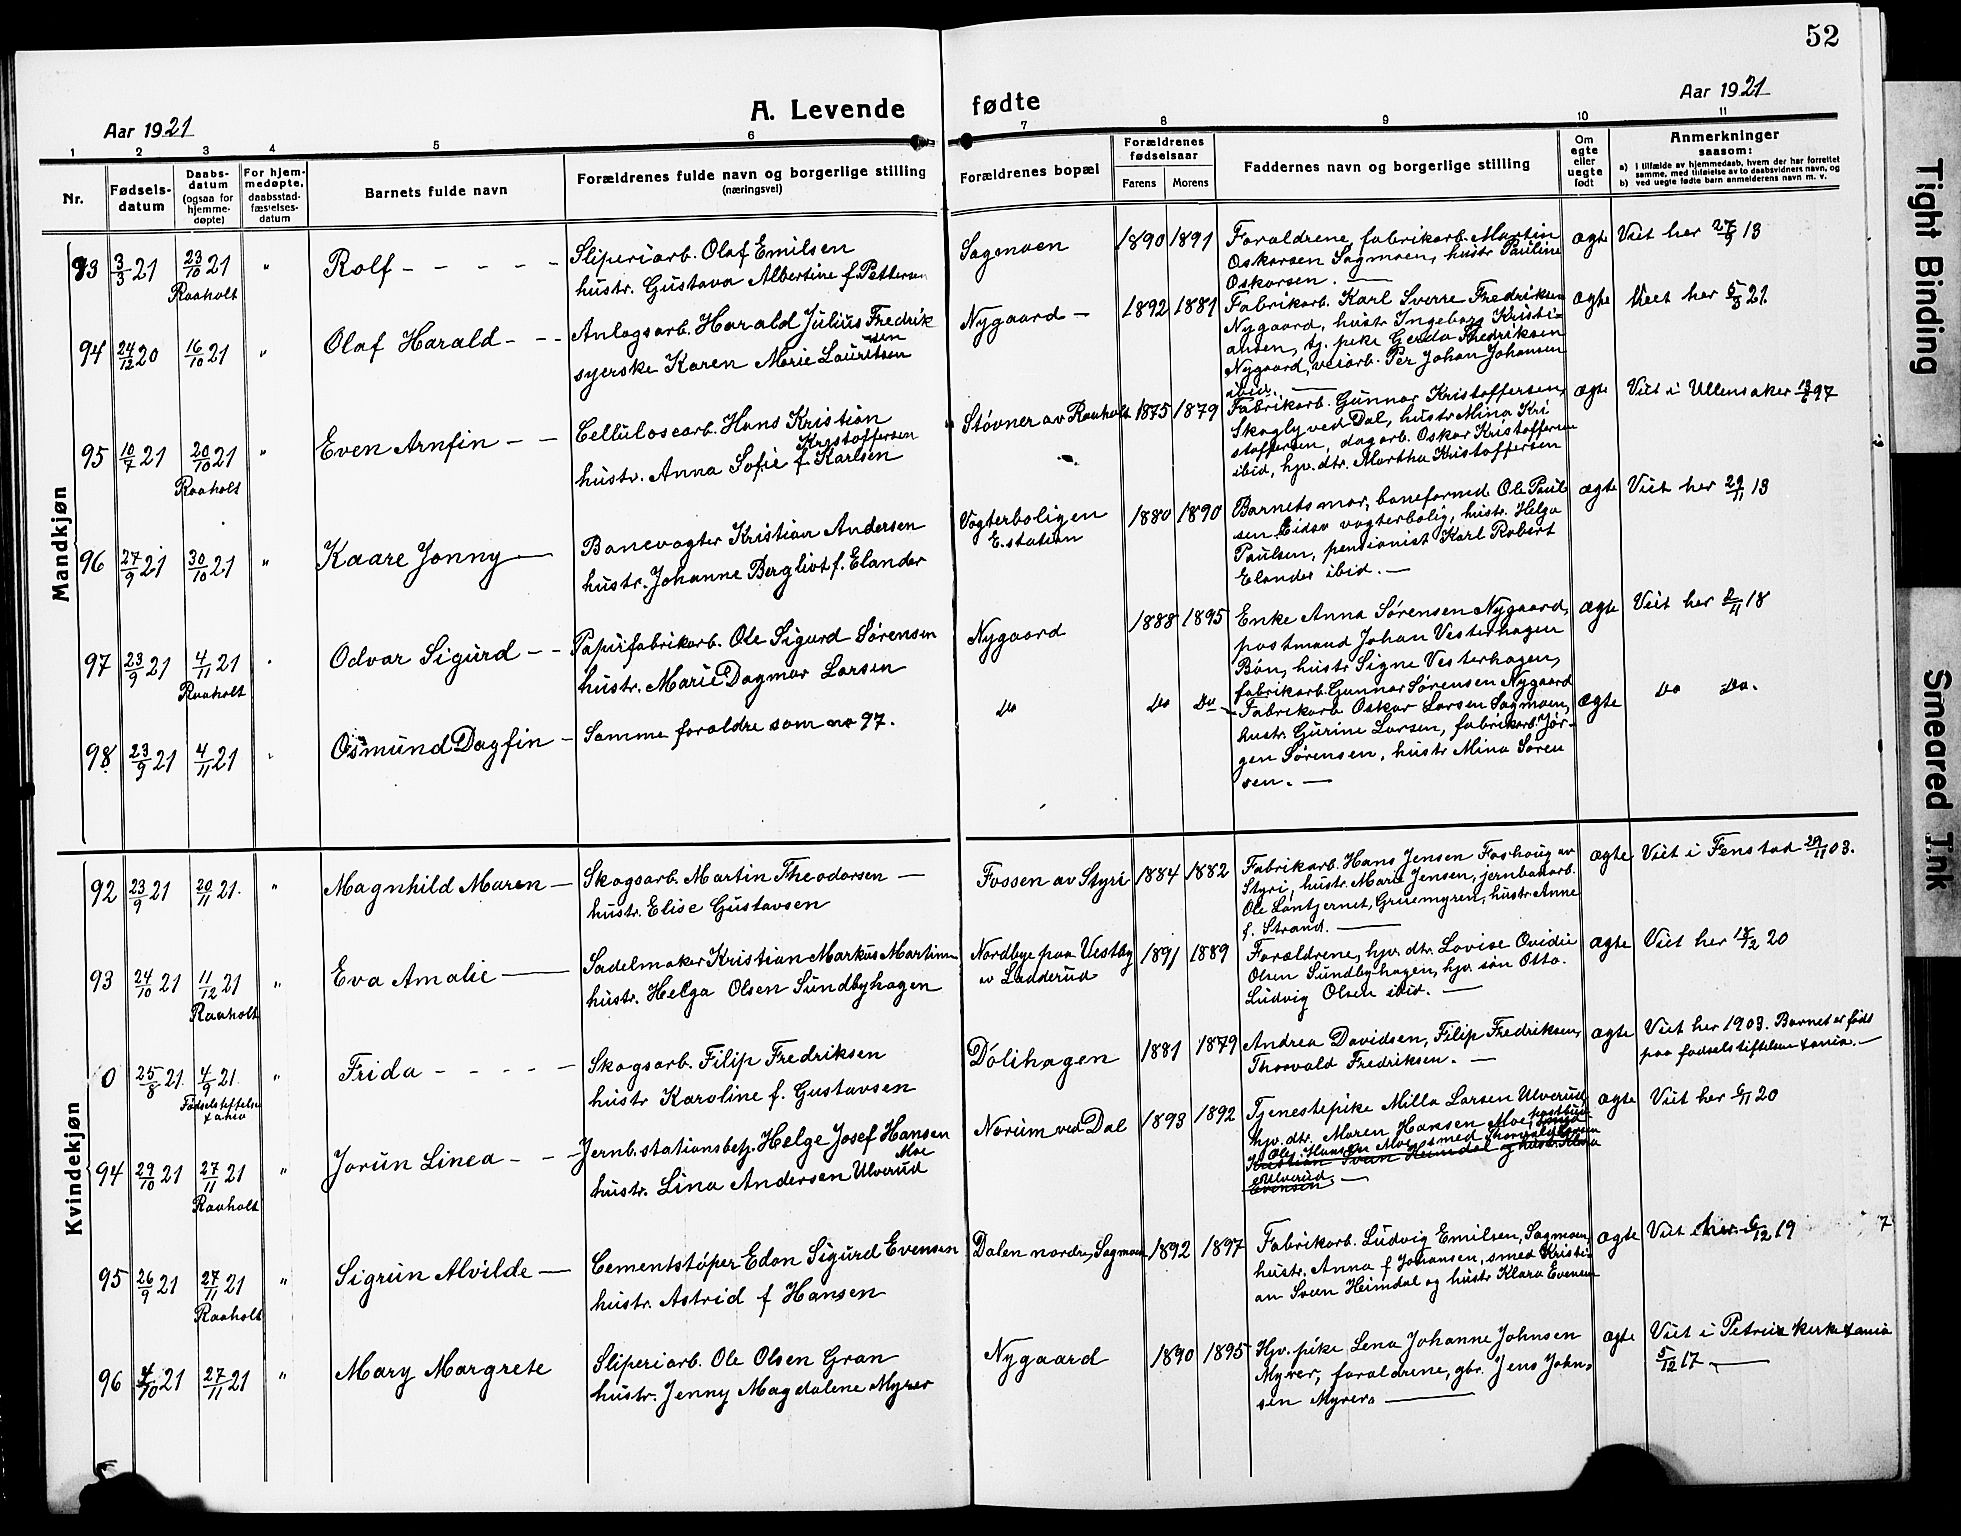 52
Aar 1921
A. Levende fødte
Aar 1921
1 2 3 4 5 6 7 8 9 10 11
Nr.
Fødsels-
datum
Daabs-
datum
(ogsaa for
hjemme-
døpte)
For hjem-
medøpte,
daabsstad-
fæstelses-
datum
Barnets fulde navn
Forældrenes fulde navn og borgerlige stilling
(næringsvei)
Forældrenes bopæl
Forældrenes
fødselsaar
Farens Morens
Faddernes navn og borgerlige stilling
Om
egte
eller
uegte
født
Anmerkninger
saasom:
a) i tilfælde av hjemmedaab, hvem der har forrettet
samme, med tilføielse av to daabsvidners navn, og
b) ved uegte fødte barn anmelderens navn m. v.
Mandkjøn
93 3/3 21 23/10 21 " Rolf - - - - -
Raaholt
Sliperiarb. Olaf Emilsen
hustr. Gustava Albertine f. Pettersen
Sagmoen
1890 1891
Forældrene, fabrikarb. Martin
Oskarsen Sagmoen, hustr Pauline
Oskarsen. —
ægte Viet her 27/9 13
94 24/12 20 16/10 21 " Olaf Harald - - -
Anlægsarb. Harald Julius Fredrik
sen
syerske Karen Marie Lauritsen
Nygaard -
1892 1881
Fabrikarb. Karl Sverre Fredriksen
Nygaard, hustr Ingeborg Kristi-
ansen, tj. pike Gerda Fredriksen
Nygaard, veiarb. Per Johan Johansen
ibid. —
ægte Viet her 5/3 21
95 10/7 21 20/10 21 " Even Arnfin - -
Raaholt
Celluloscarb. Hans Kristian
Kristoffersen
hustr. Anna Sofie f. Karlsen
Støvner av Raaholt
1875 1879
Fabrikarb. Gunnar Kristoffersen,
Skogly ved Dal, hustr Mina Kri
stoffersen, dagarb. Oskar Kristoffersen
ibid, hjv. dtr. Martha Kristoffersen
ægte Viet i Ullensaker 97
96 27/9 21 30/10 21 " Kaare Jonny —
Banevogter Kristian Andersen
hustr. Johanne Bergliot f. Elander
Vogterboligen
E. station
1880 1890
Barnets mor, baneformd Ole Paul
sen Eidsv vogterbolig, hustr. Helga
Paulsen, pensionist Karl Robert
Elander ibid. —
ægte Viet her 29/11 13
97 23/9 21 4/11 21 Odvar Sigurd - -
Raaholt
Papirfabrikarb. Ole Sigurd Sørensen
hustr. Marie Dagmar Larsen
Nygaard
1888 1895
Enke Anna Sørensen Nygaard,
postmand Johan Vesterhagen
Bøn, hustr Signe Vesterhagen,
fabrikarb. Gunnar Sørensen Nygaard
ægte Viet her 2/11 18
98 23/9 21 4/11 21 Osmund Dagfin -
Samme forældre som no 97.
Do Do Do
Fabrikarb Oskar Larsen Sagmoen,
hustr. Gurine Larsen, fabrikarb. Jør-
gen Sørensen, hustr Mina Søren
sen. —
ægte Do Do.
Kvindekjøn
92 23/9 21 20/11 21. " Magnhild Maren —
Skogsarb. Martin Theodorsen —
hustr. Elise Gustavsen
Fossen av Styri
1884 1882
Fabrikarb. Hans Jensen Foshaug av
Styri, hustr. Marie Jensen, jernbanarb.
Ole Løntjernet, Gruemyren, hustr Anne
f. Strand. —
ægte Viet i Fenstad 29/11 03.
93 24/10 21 11/12 21 " Eva Amalie —
Raaholt
Sadelmaker Kristian Markus Martinsen
hustr. Helga Olsen Sundbyhagen
Nordbye paa Vestby
av Ladderud
1891 1889
Forældrene, hjv. dtr. Lovise Ovidie
Olsen Sundbyhagen, hjv. søn Otto
Ludvig Olsen ibid. —
ægte Viet her 20
0 25/8 21. 4/9 21. " Frida - - - -
Fødselstiftelse
Xania
Skogsarb. Filip Fredriksen
hustr Karoline f. Gustavsen
Dølihagen
1881 1879
Andrea Davidsen, Filip Fredriksen,
Thorvald Fredriksen. —
ægte Viet her 1903. Barnet er født
paa fødselstiftelsen Xania. —
94 29/10 21 27/11 21 " Jorun Linea - - -
Raaholt
Jernb. stationsbetj. Helge Josef Hansen
Moe
hustr. Lina Andersen Ulverud
Norum ved Dal
1893 1892
Tjenestepike Milla Larsen Ulverud,
hjv. dtr. Maren Hansen Moe,
Olaf Hansen Moe, smed
Kristian Sven Heimdal og hustr. Klara
Ulverud
Evensen —
ægte Viet her 6/11 20
95 26/9 21 27/11 21 " Sigrun Alvilde —
Raaholt
Cementstøper Edon Sigurd Evensen
hustr. Astrid f Hansen
Dalen nordre, Sagmoen
1892 1897
Fabrikarb. Ludvig Emilsen, Sagmoen,
hustr. Anna f Johansen, smed Kristi
an Sven Heimdal og hustr Klara Evensen
ægte Viet her 6/12 19
7
96 4/10 21 27/11 21 " Mary Margrete
Sliperiarb. Ole Olsen Gran
hustr. Jenny Magdalene Myrer
Nygaard
1890 1895
Hjv. pike Lena Johanne Johnsen
Myrer, forældrene, gbr. Jens John-
sen Myrer. —
ægte Viet i Petrus Kerke Xania
5/12 17. —
Tight Binding
Smeared Ink